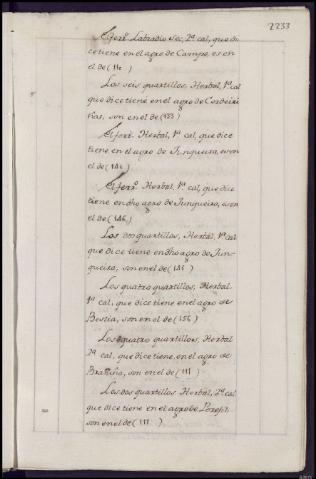 2233
El ferr.º Labradio sec, 2ª cal, que di
ce tiene en el agro de Campo, es en
el de (114)
Los seis quartillos, Herbal, 1ª cal
que dice tiene en el agro de Cordeiri
ñas, son en el de (123)
El ferr. Herbal, 1ª cal, que dice
tiene en el agro de Junqueira, es en
el de (146)
El ferr.º Herbal, 1ª cal, que dice
tiene en dho agro de Junqueira, es en
el de (146)
Los dos quartillos, Herbal, 1ª cal
que dice tiene en dho agro de Jun-
queira, son en el de (146)
Los quatro quartillos, Herbal
1ª cal, que dice tiene en el agro de
Bostia, son en el de (156)
Los quatro quartillos, Herbal
2ª cal, que dice tiene, en el agro de
son en el de (111)
Los dos quartillos Herbal, 2ª cal
que dice tiene en el agro de
son en el de (111)